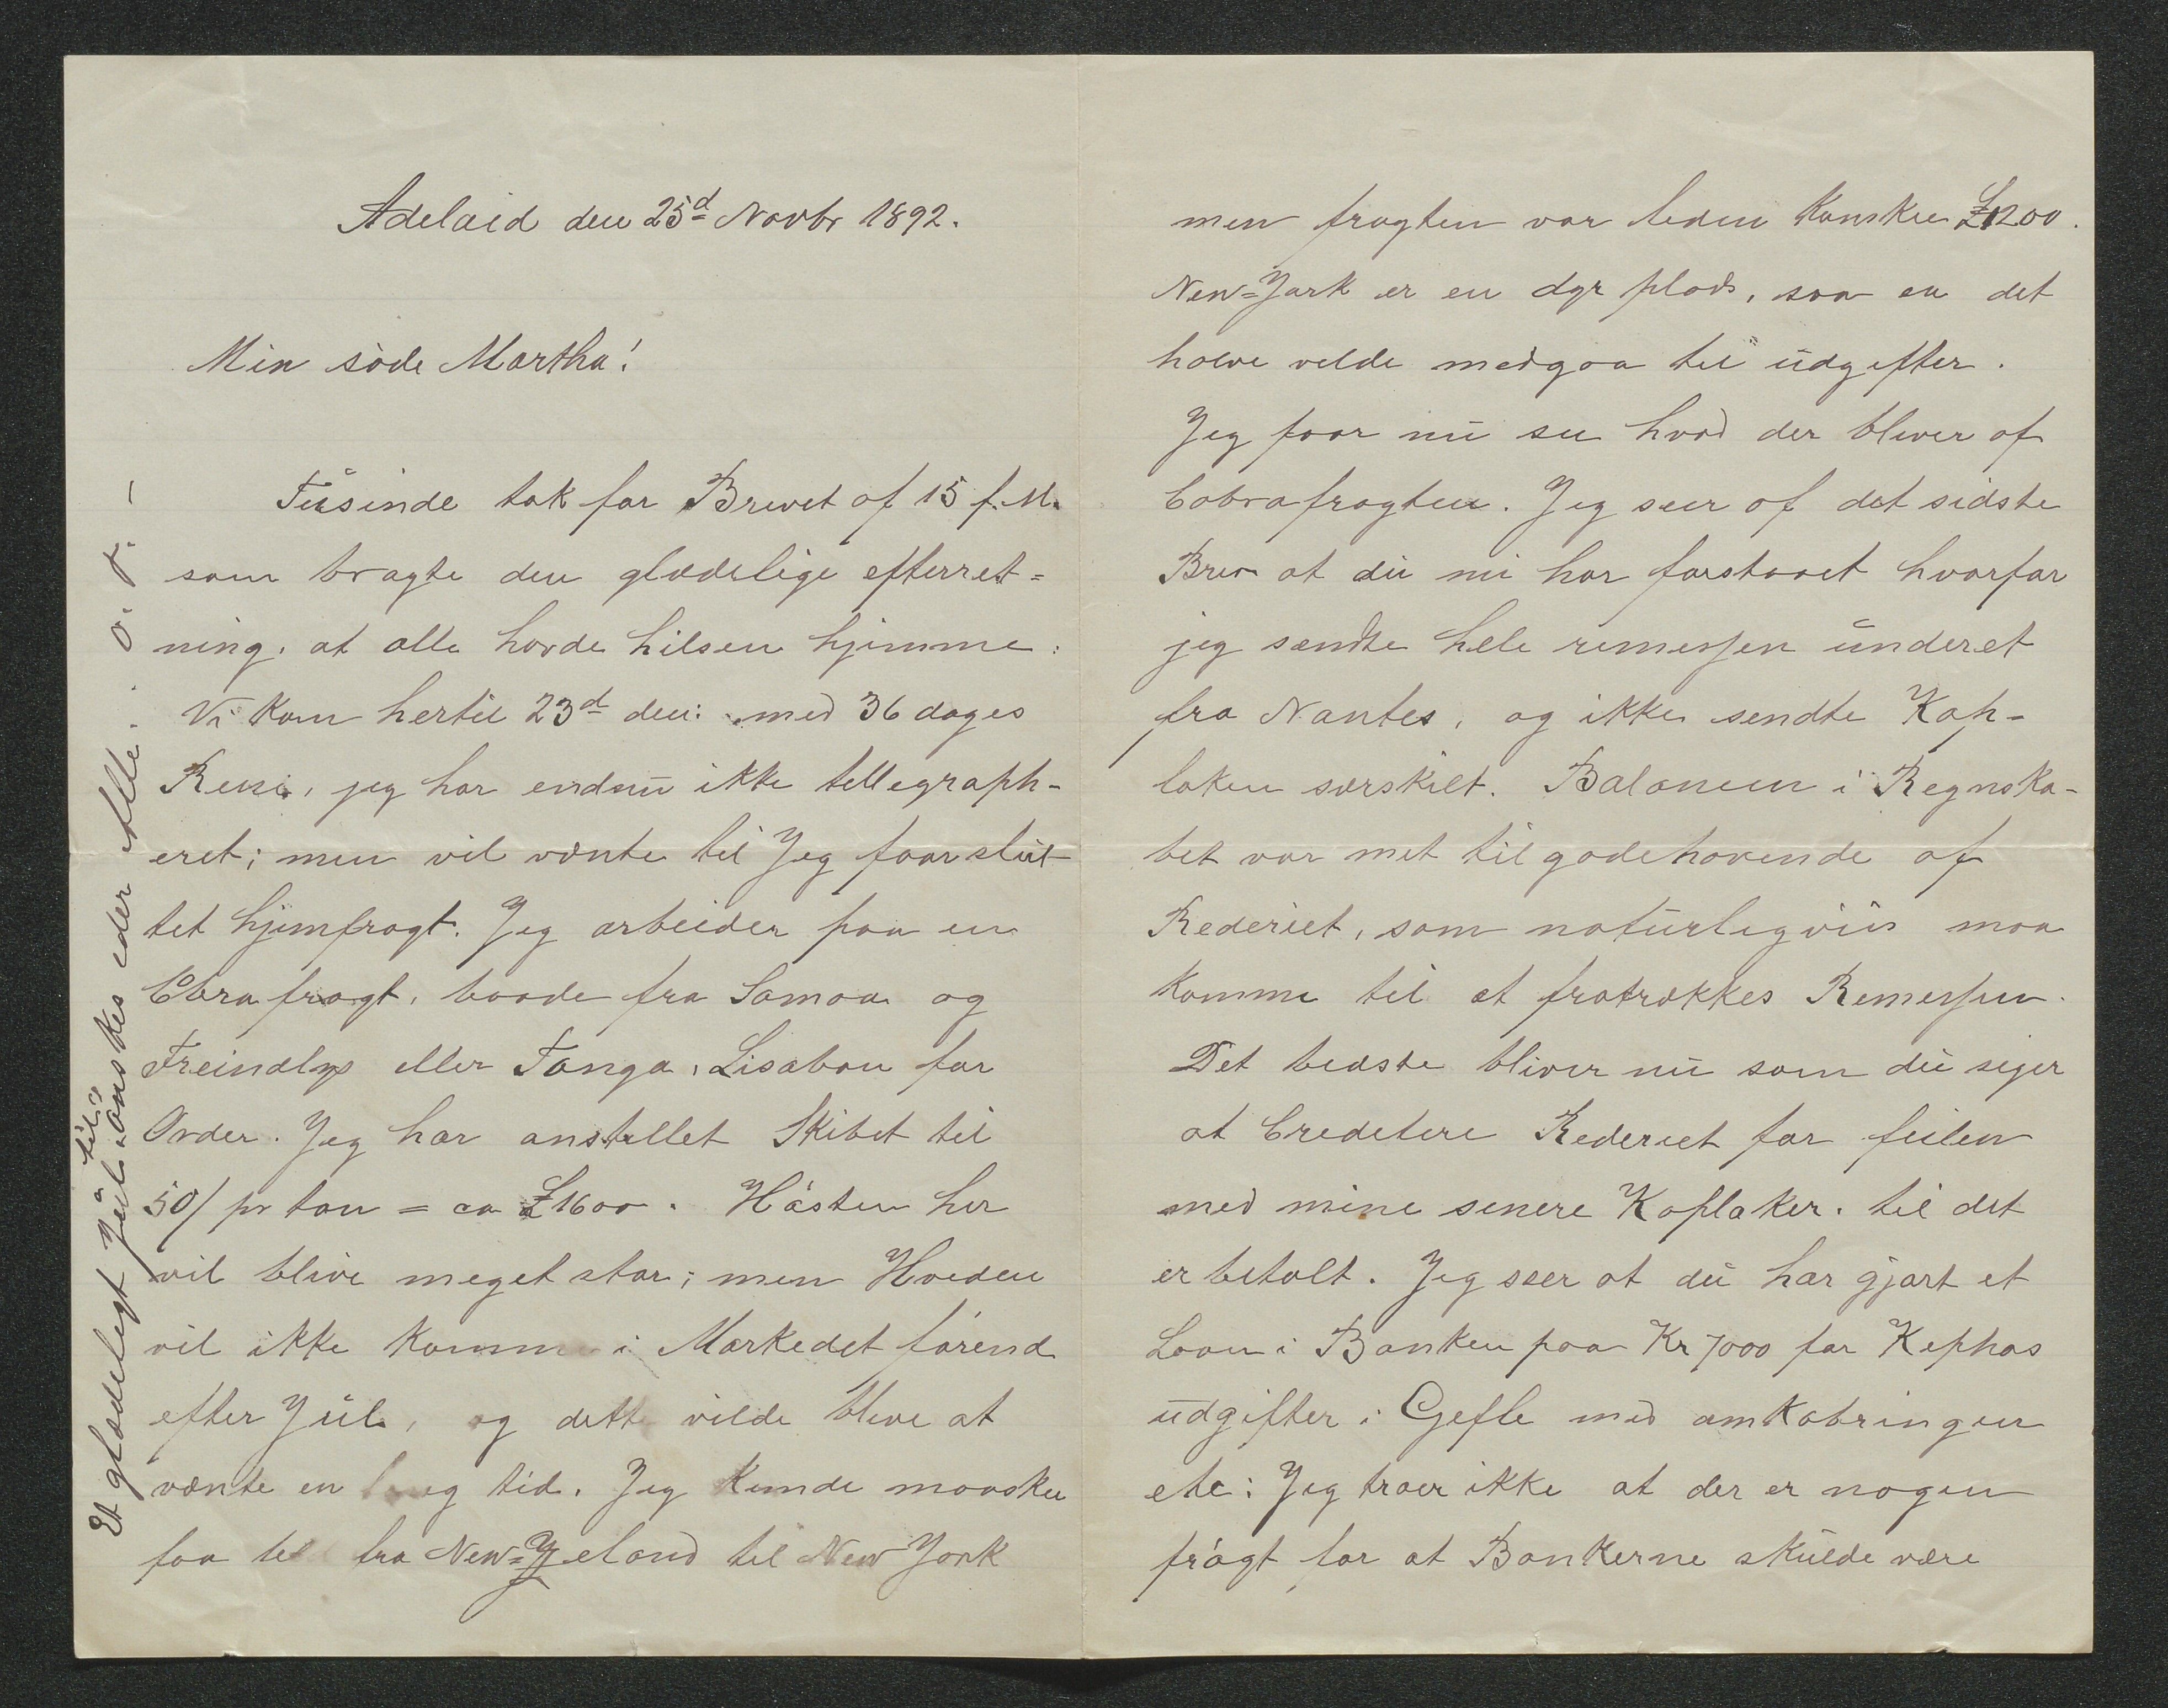 Adelaid den 25d Novbr 1892.
Min söde Martha!
Tusinde tak for Brevet af 15 f. M.
som bragte den glædelige efterret=
ning. at alle havde hilsen hjimme:
Vi kom hertil 23d den: med 36 dages
Reise, jeg har endnu ikke tellegraph-
eret; men vil vænte til Jeg faar slut-
tet hjimfragt. Jeg arbeider paa en
Cobra fragt, baade fra Samoa og
Freindlys eller Tonga, Lisabon for
Order. Jeg har anstellet Skibet til
50/ pr ton = ca £1600. Hösten her
vil blive meget stor; men Hveden
vil ikke komme i Markedet förend
efter Jul, og dette vilde blive at
vænte en lang tid. Jeg kunde maaskee
faa fra New=Zeland til New York
Et glædeligt Jul tilönskes eder Alle.
men fragten var leden Kanskee £1200.
New=Jark er en dyr plads, saa en det
halve vilde medgaa til udgifter.
Jeg faar nu see hvad der bliver af
Cobrafragten. Jeg seer af det sidste
Brev at du nu har forstaaet hvorfor
jeg sendte hele remessen underet
fra Nantes, og ikke sendte Kap-
laken særskilt. Balancen i Regnska-
bet var mit tilgodehavende af
Rederiet, som naturligviis maa
komme til at fratrækkes Remessen.
Det bedste bliver nu som du siger
at Creditere Rederiet for feilen
med mine senere Kaplaker. til det
er betalt. Jeg seer at du har gjort et
Laan i Banken paa Kr 7000 for Kephas
udgifter i Gefle med omkobringen
etc: Jeg troer ikke at der er nogen
frögt for at Bankerne skulde være